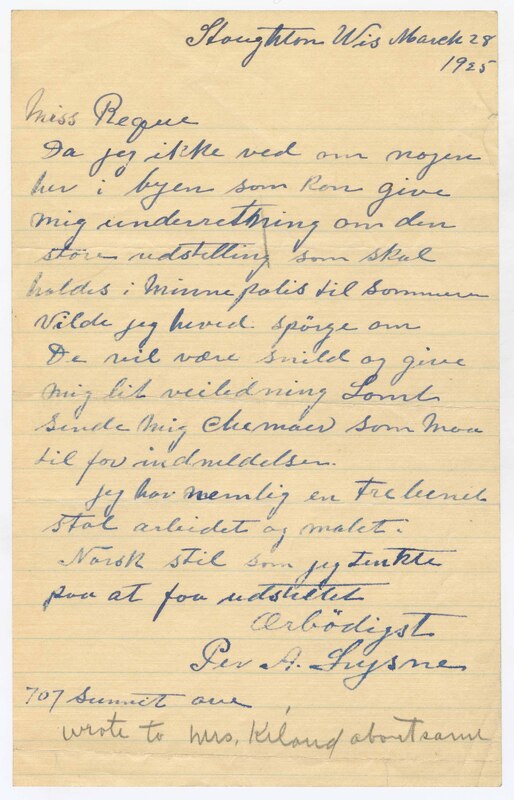 Stoughton Wis March 28
1925
Miss Reque
Da jeg ikke ved om nogen
her i byen som kan give
mig underretning om den
store udstelling som skal
holdes i Minnepolis til sommeren
Vilde jeg herved spörge om
De vil være snild og give
mig lit veiledning Samt
sende mig Chemaer som maa
til for indmeldelsen.
jeg har nemlig en trebenet
stol arbeidet og malet i
Norsk stil som jeg tenkte
paa at faa udstillet
Ærbödigst
Per A. Lysne
707 Summit ave
wrote to Mrs. Kiland about same